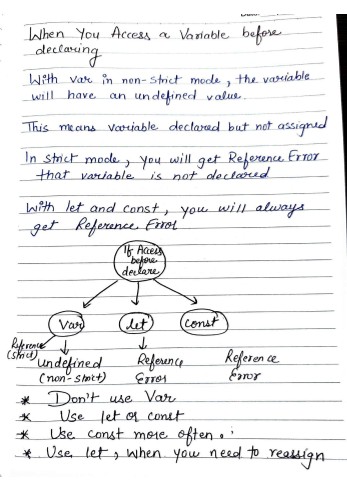 When You Access a Variable before
declaring
With var in non-strict mode, the variable
will have an undefined value.
This means variable declared but not assigned
In strict mode, you will get Reference Error
that variable is not declared
With let and const, you will always
get Reference Error
If Access
before
declare
Var
let
const
Reference
(strict)
undefined
(non-strict)
Reference
Error
Reference
Error
* Don't use Var
* Use let or const
* Use const more often.
* Use let, when you need to reassign